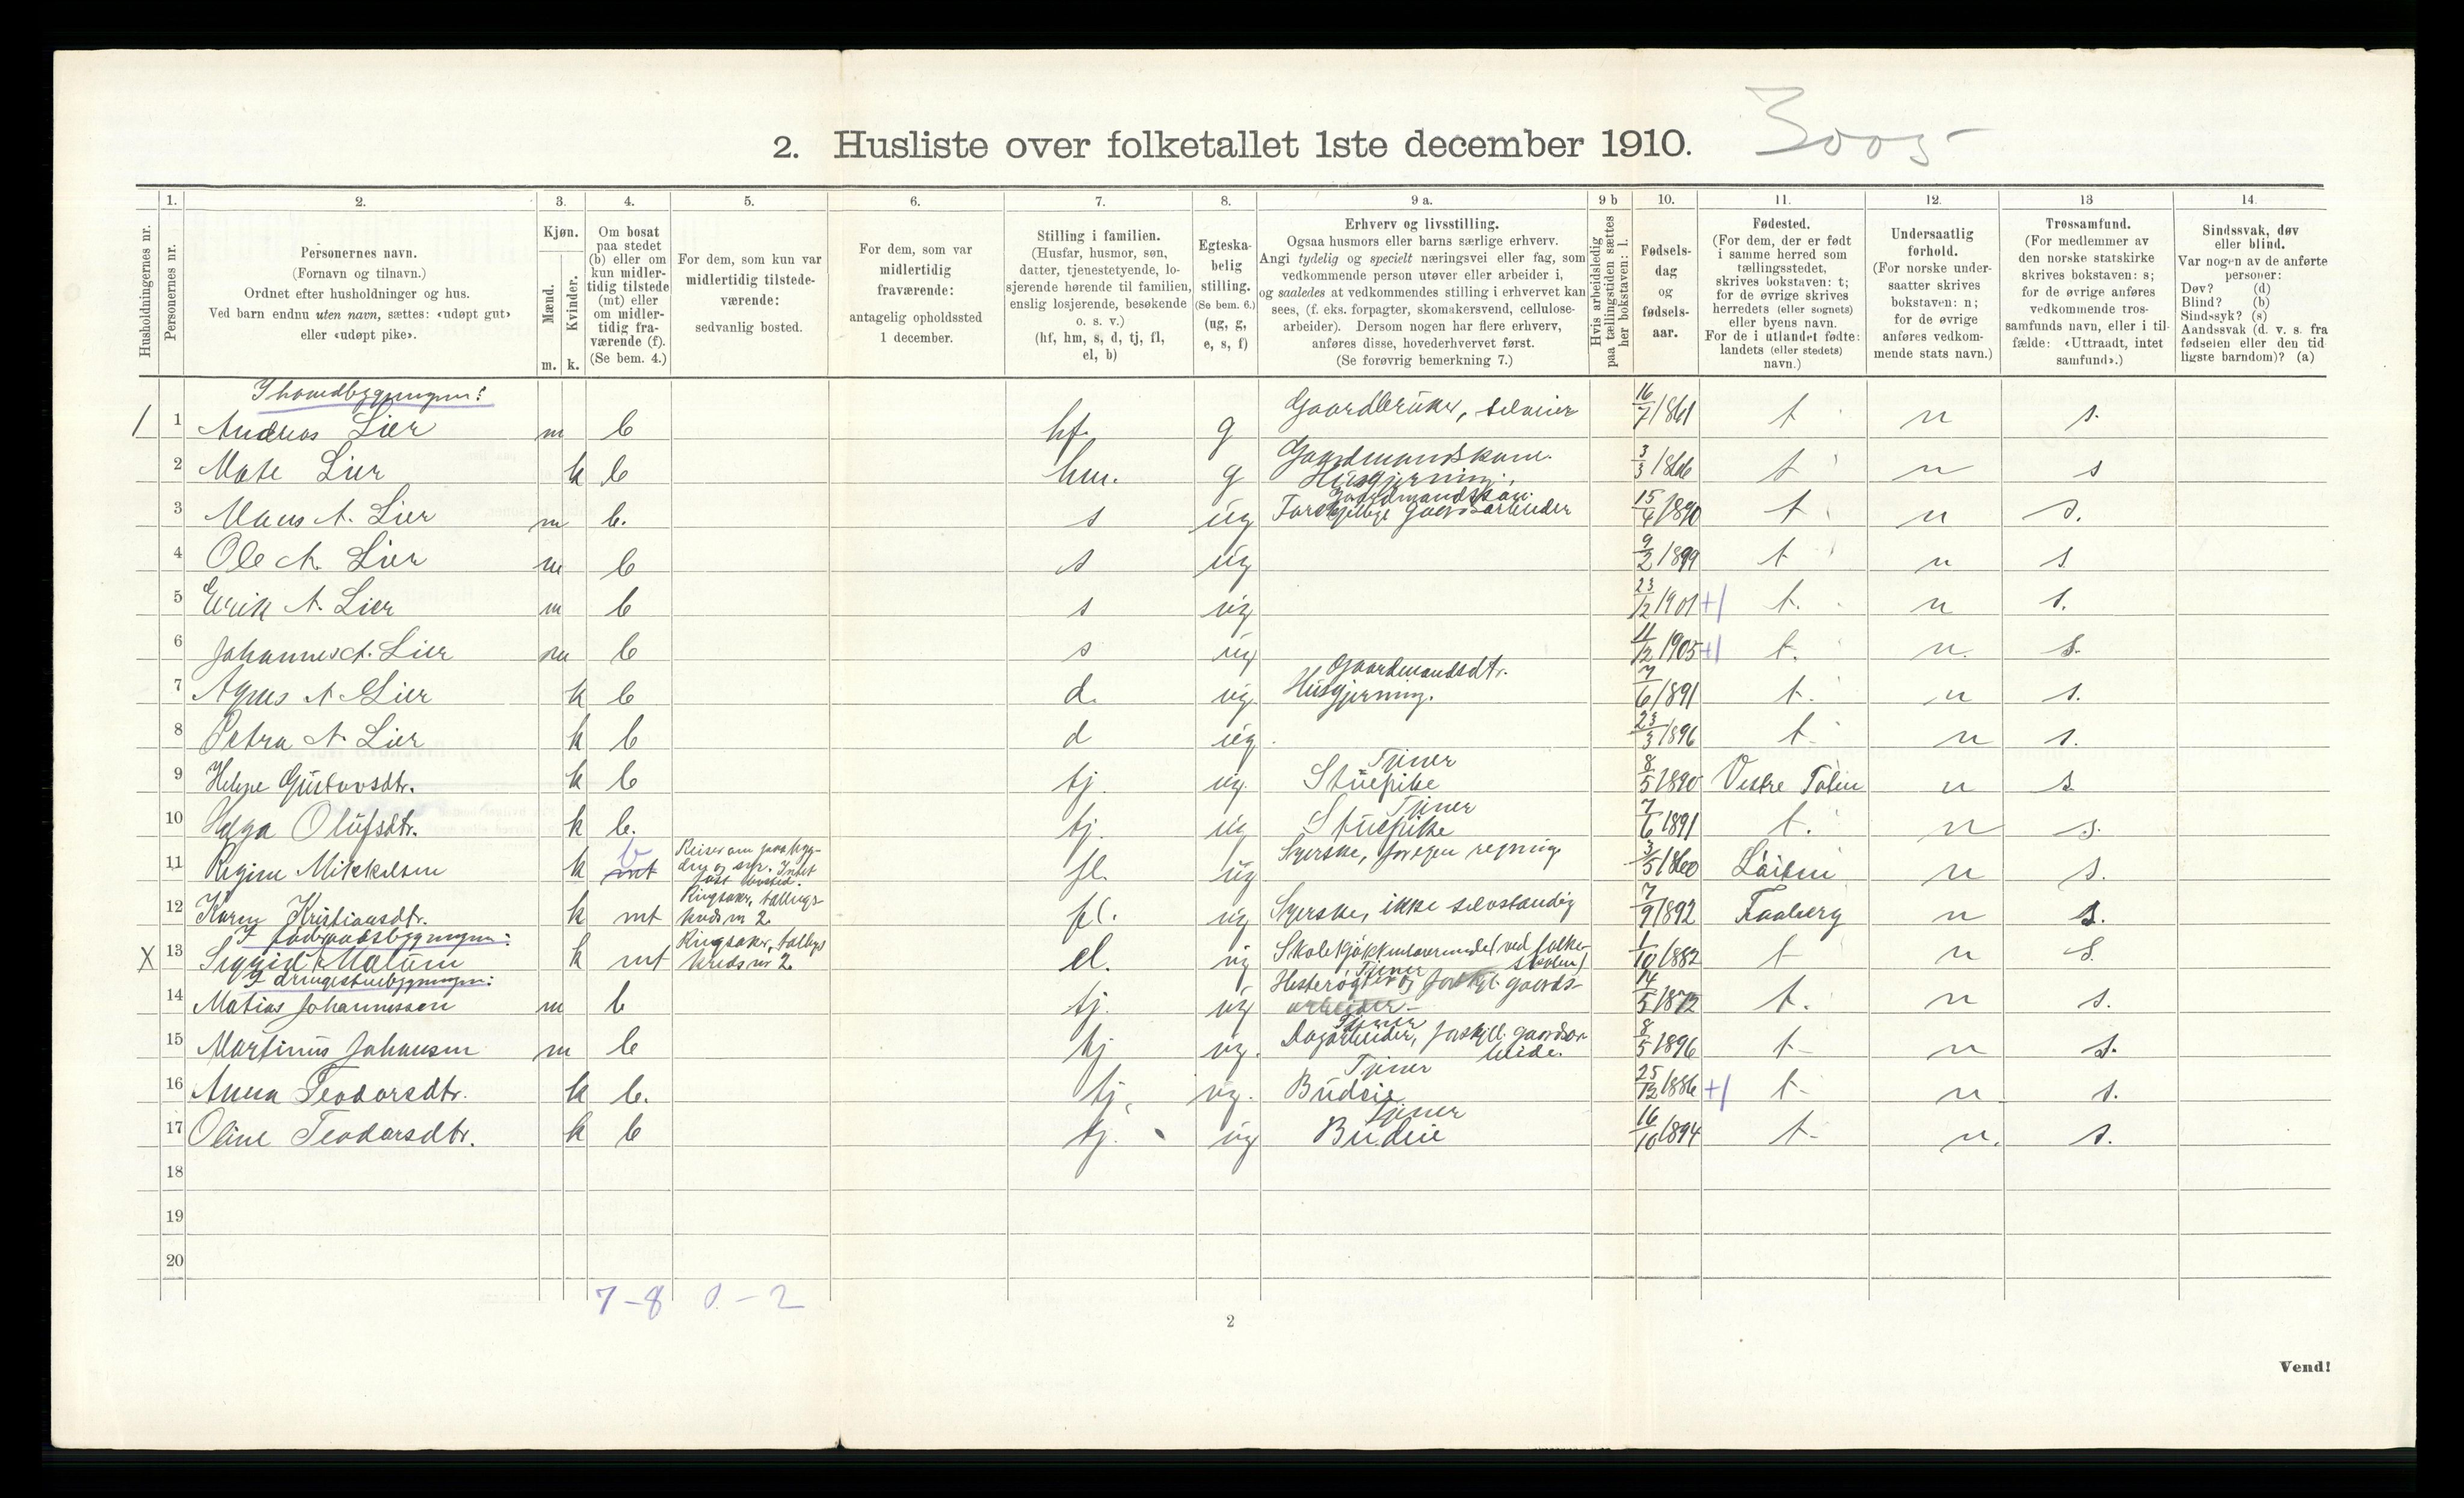 2. Husliste over folketallet 1ste december 1910.
Husholdningernes nr.
1.
Personernes nr.
2.
Personernes navn.
(Fornavn og tilnavn.)
Ordnet efter husholdninger og hus.
Ved barn endnu uten navn, sættes: «udøpt gut»
eller «udøpt pike».
3.
Kjøn.
Mænd.
Kvinder.
m. k.
4.
Om bosat
paa stedet
(b) eller om
kun midler-
tidig tilstede
(mt) eller
om midler-
tidig fra-
værende (f).
(Se bem. 4.)
5.
For dem, som kun var
midlertidig tilstede-
værende:
sedvanlig bosted.
6.
For dem, som var
midlertidig
fraværende:
antagelig opholdssted
1 december.
7.
Stilling i familien.
(Husfar, husmor, søn,
datter, tjenestetyende, lo-
sjerende hørende til familien,
enslig losjerende, besøkende
o. s. v.)
(hf, hm, s, d, tj, fl,
el, b)
8.
Egteska-
belig
stilling.
(Se bem. 6.)
(ug, g,
e, s, f)
9 a.
Erhverv og livsstilling.
Ogsaa husmors eller barns særlige erhverv.
Angi tydelig og specielt næringsvei eller fag, som
vedkommende person utøver eller arbeider i,
og saaledes at vedkommendes stilling i erhvervet kan
sees, (f. eks. forpagter, skomakersvend, cellulose-
arbeider). Dersom nogen har flere erhverv,
anføres disse, hovederhvervet først.
(Se forøvrig bemerkning 7.)
9 b
Hvis arbeidsledig
paa tællingstiden sættes
her bokstaven: l.
10.
Fødsels-
dag
og
fødsels-
aar.
11.
Fødested.
(For dem, der er født
i samme herred som
tællingsstedet,
skrives bokstaven: t;
for de øvrige skrives
herredets (eller sognets)
eller byens navn.
For de i utlandet fødte:
landets (eller stedets)
navn.)
12.
Undersaatlig
forhold.
(For norske under-
saatter skrives
bokstaven: n;
for de øvrige
anføres vedkom-
mende stats navn.)
13
Trossamfund.
(For medlemmer av
den norske statskirke
skrives bokstaven: s;
for de øvrige anføres
vedkommende tros-
samfunds navn, eller i til-
fælde: «Uttraadt, intet
samfund».)
14.
Sindssvak, døv
eller blind.
Var nogen av de anførte
personer:
Døv? (d)
Blind? (b)
Sindssyk? (s)
Aandssvak (d. v. s. fra
fødselen eller den tid-
ligste barndom)? (a)
I hovedbygningen:
1 1 Andreas Lier m b hf. g Gaardbruker, selveier 16/7 1861 t n s.
2 Mate Lier k b hm. g Gaardmandskone. Husgjerning. 3/3 1866 t n s
3 Hans A. Lier m b. s ug Gaardmandssøn. Forskjellige gaardsarbeider 15/4 1890 t n s.
4 Ole A. Lier m b s ug 9/2 1899 t n s
5 Erik A. Lier m b s ug 23/12 1901 +1 t. n s.
6 Johannes A. Lier m b s ug 11/12 1905 +1 t. n. s.
7 Agnes A Lier k b d. ug Gaardmandsdtr. Husgjerning. 7/6 1891 t. n s.
8 Petra A. Lier k b d ug 23/3 1896 t n s.
9 Helene Gustavsdtr. k b tj. ug. Tjener Stuepike 8/5 1890 Vestre Toten n s
10 Helga Olufsdtr. k b. tj. ug Tjener Stuepike 7/6 1891 t. n s.
11 Regine Mikkelsen k mt b Reiser om paa byg-
den og syr. Intet
fast bosted. fl. ug Syerske, for egen regning 3/5 1860 Løiten n s.
12 Karen Kristiansdtr. k mt Ringsaker, tællings-
kreds nr 2. fl. ug Syerske, ikke selvstændig 7/9 1892 Faaberg n s.
I føderaadsbygningen:
X 13 Sigrid Mælum k mt Ringsaker, tællings
kreds nr 2. el. ug Skolekjøkkenlærerinde (ved folke-
skolen) 1/10 1882 t n s.
I drengestuebygningen:
14 Matias Johannessen m b tj. ug Tjener Hesterøgter og forskjl. gaards-
arbeider 14/5 1872 t. n s.
15 Martinus Johansen m b tj ug. Tjener Dagarbeider, forskjell. gaardsar-
beide. 8/5 1896 t n s.
16 Anna Teodorsdtr. k b. tj. ug. Tjener Budeie 25/12 1886 +1 t n s.
17 Oline Teodorsdtr. k b tj. ug Tjener Budeie 16/10 1894 t n. s.
18
19
20
7 - 8 0 - 2
2
Vend!